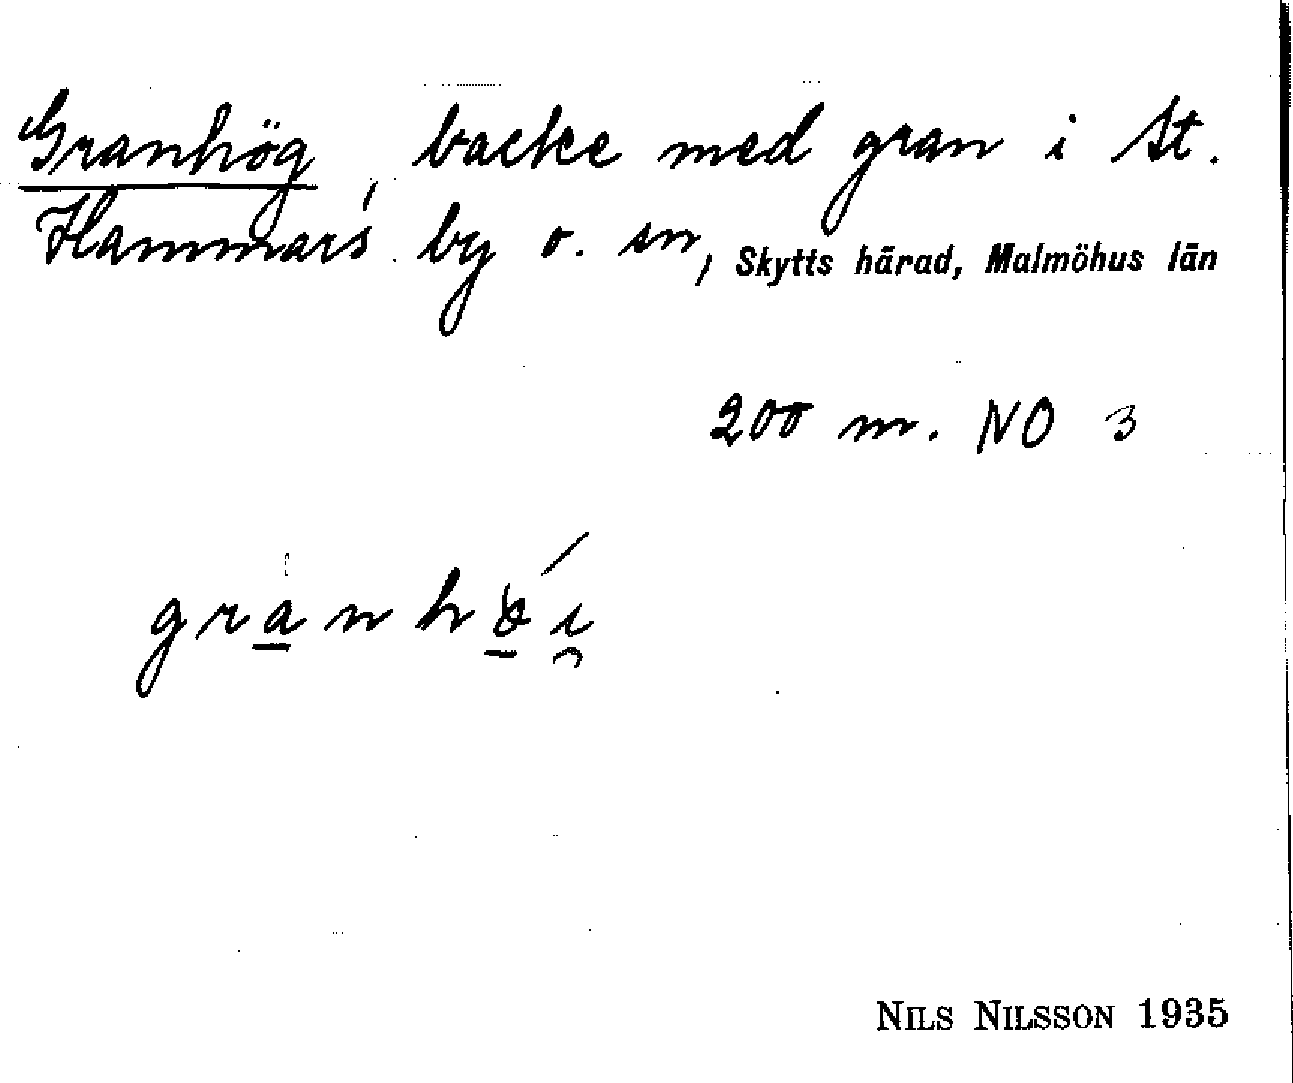 Granhög, backe med gran i St.
Hammars by o. sn, Skytts härad, Malmöhus län
200 m. NO 3
granhöi
NILS NILSSON 1935